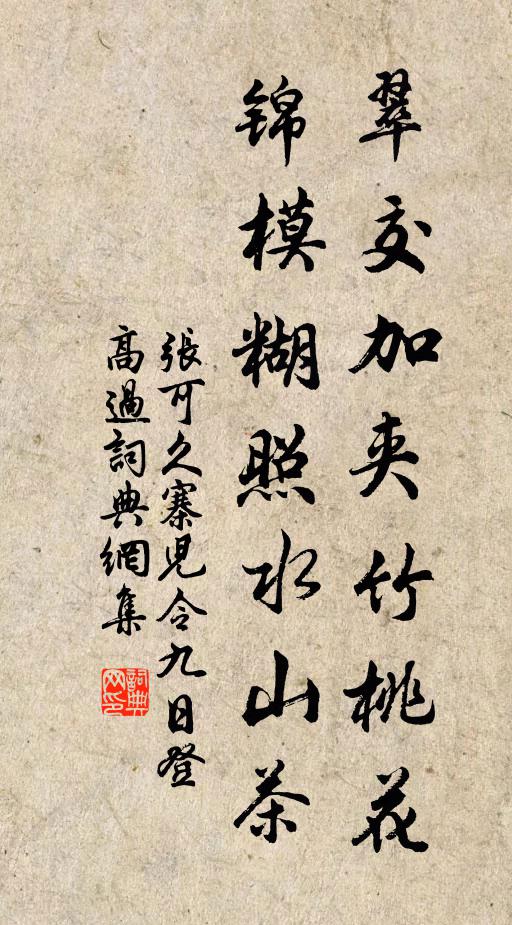 翠交加夹竹桃花
锦模糊照水山茶
張可久寨兒令九日登
高過詞典網集
詞典网印